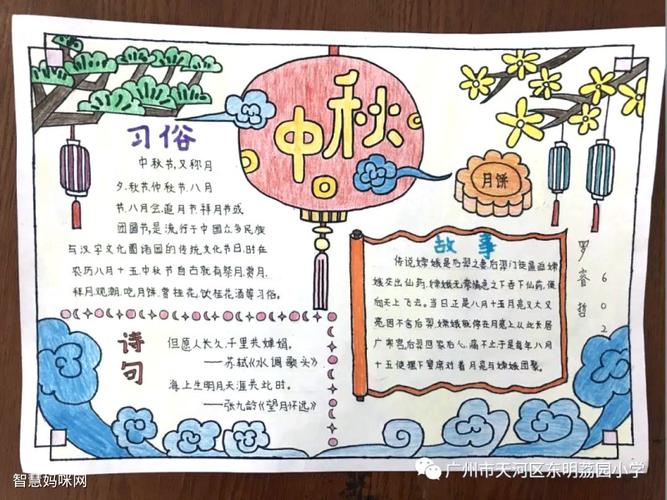 中秋
习俗
中秋节,又称月
夕、秋节、仲秋节、八月
节、八月会、追月节、祭月节或
团圆节,是流行于中国众多民族
与汉字文化圈诸国的传统文化节日,时在
农历八月十五,中秋节自古就有祭月、赏月、
拜月、观潮、吃月饼、赏桂花、饮桂花酒等习俗。
月饼
故事
传说,嫦娥是后羿之妻,后羿门徒逼迫嫦
娥交出仙药,嫦娥无
之下吞下仙药,便
向天上飞去。当日正是八月十五,月亮又大又
亮,因不舍后羿,嫦娥就停在月亮上,从此长居
广寒宫。后羿回家后心痛不止,于是每年八月
十五便摆下宴席对着月亮与嫦娥团聚。
罗睿哲
602
诗句
但愿人长久,千里共婵娟。
——苏轼《水调歌头》
海上生明月天涯共此时。
——张九龄《望月怀远》
智慧妈咪网
广州市天河区东明荔园小学